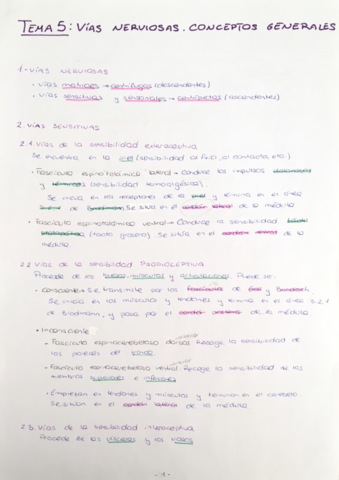 TEMA 5: VÍAS NERVIOSAS. CONCEPTOS GENERALES
1.- VÍAS NERVIOSAS
- Vías motrices → centrífugas (descendentes)
- Vías sensitivas y sensoriales → centrípetas (ascendentes)
2. VÍAS SENSITIVAS
2.1. Vías de la sensibilidad exteroceptiva
Se encuentra en la piel (sensibilidad al frío, al contacto, etc.)
- Fascículo espinotalámico lateral → Conduce los impulsos dolorosos
y térmicos (sensibilidad termoalgésica).
Se inicia en los receptores de la piel y termina en el área
de Brodmann. Se sitúa en el cordón lateral de la médula
- Fascículo espinotalámico ventral → Conduce la sensibilidad táctil
protopática (tacto grosero). Se sitúa en el cordón ventral de la
médula
2.2. Vías de la sensibilidad PROPIOCEPTIVA
Procede de los huesos, músculos y articulaciones. Puede ser:
- Consciente → Se transmite por los fascículos de Goll y Burdach.
Se inicia en los músculos y tendones y termina en el área 3.2.1
de Brodmann, y pasa por el cordón posterior de la médula
- Inconsciente
- Fascículo espinocerebeloso dorsal Recoge la sensibilidad de
las paredes del
- Fascículo espinocerebeloso ventral Recoge la sensibilidad de los
miembros superiores e inferiores
- Empiezan en tendones y músculos y terminan en el cerebelo.
Se sitúan en el cordón lateral de la médula
2.3. Vías de la sensibilidad interoceptiva
Procede de las vísceras y los vasos
- 1 -